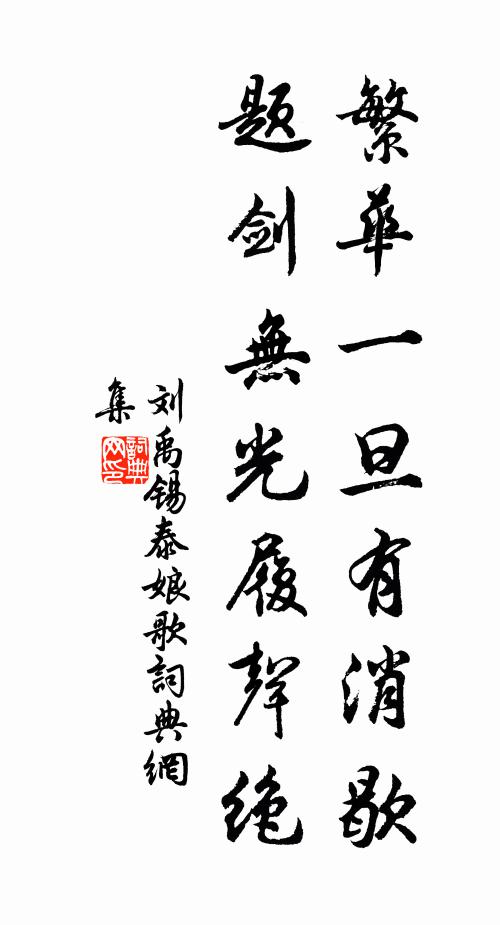 繁華一旦有消歇
題劍無光履聲絶
刘禹锡泰娘歌詞典網
集
詞典
网印